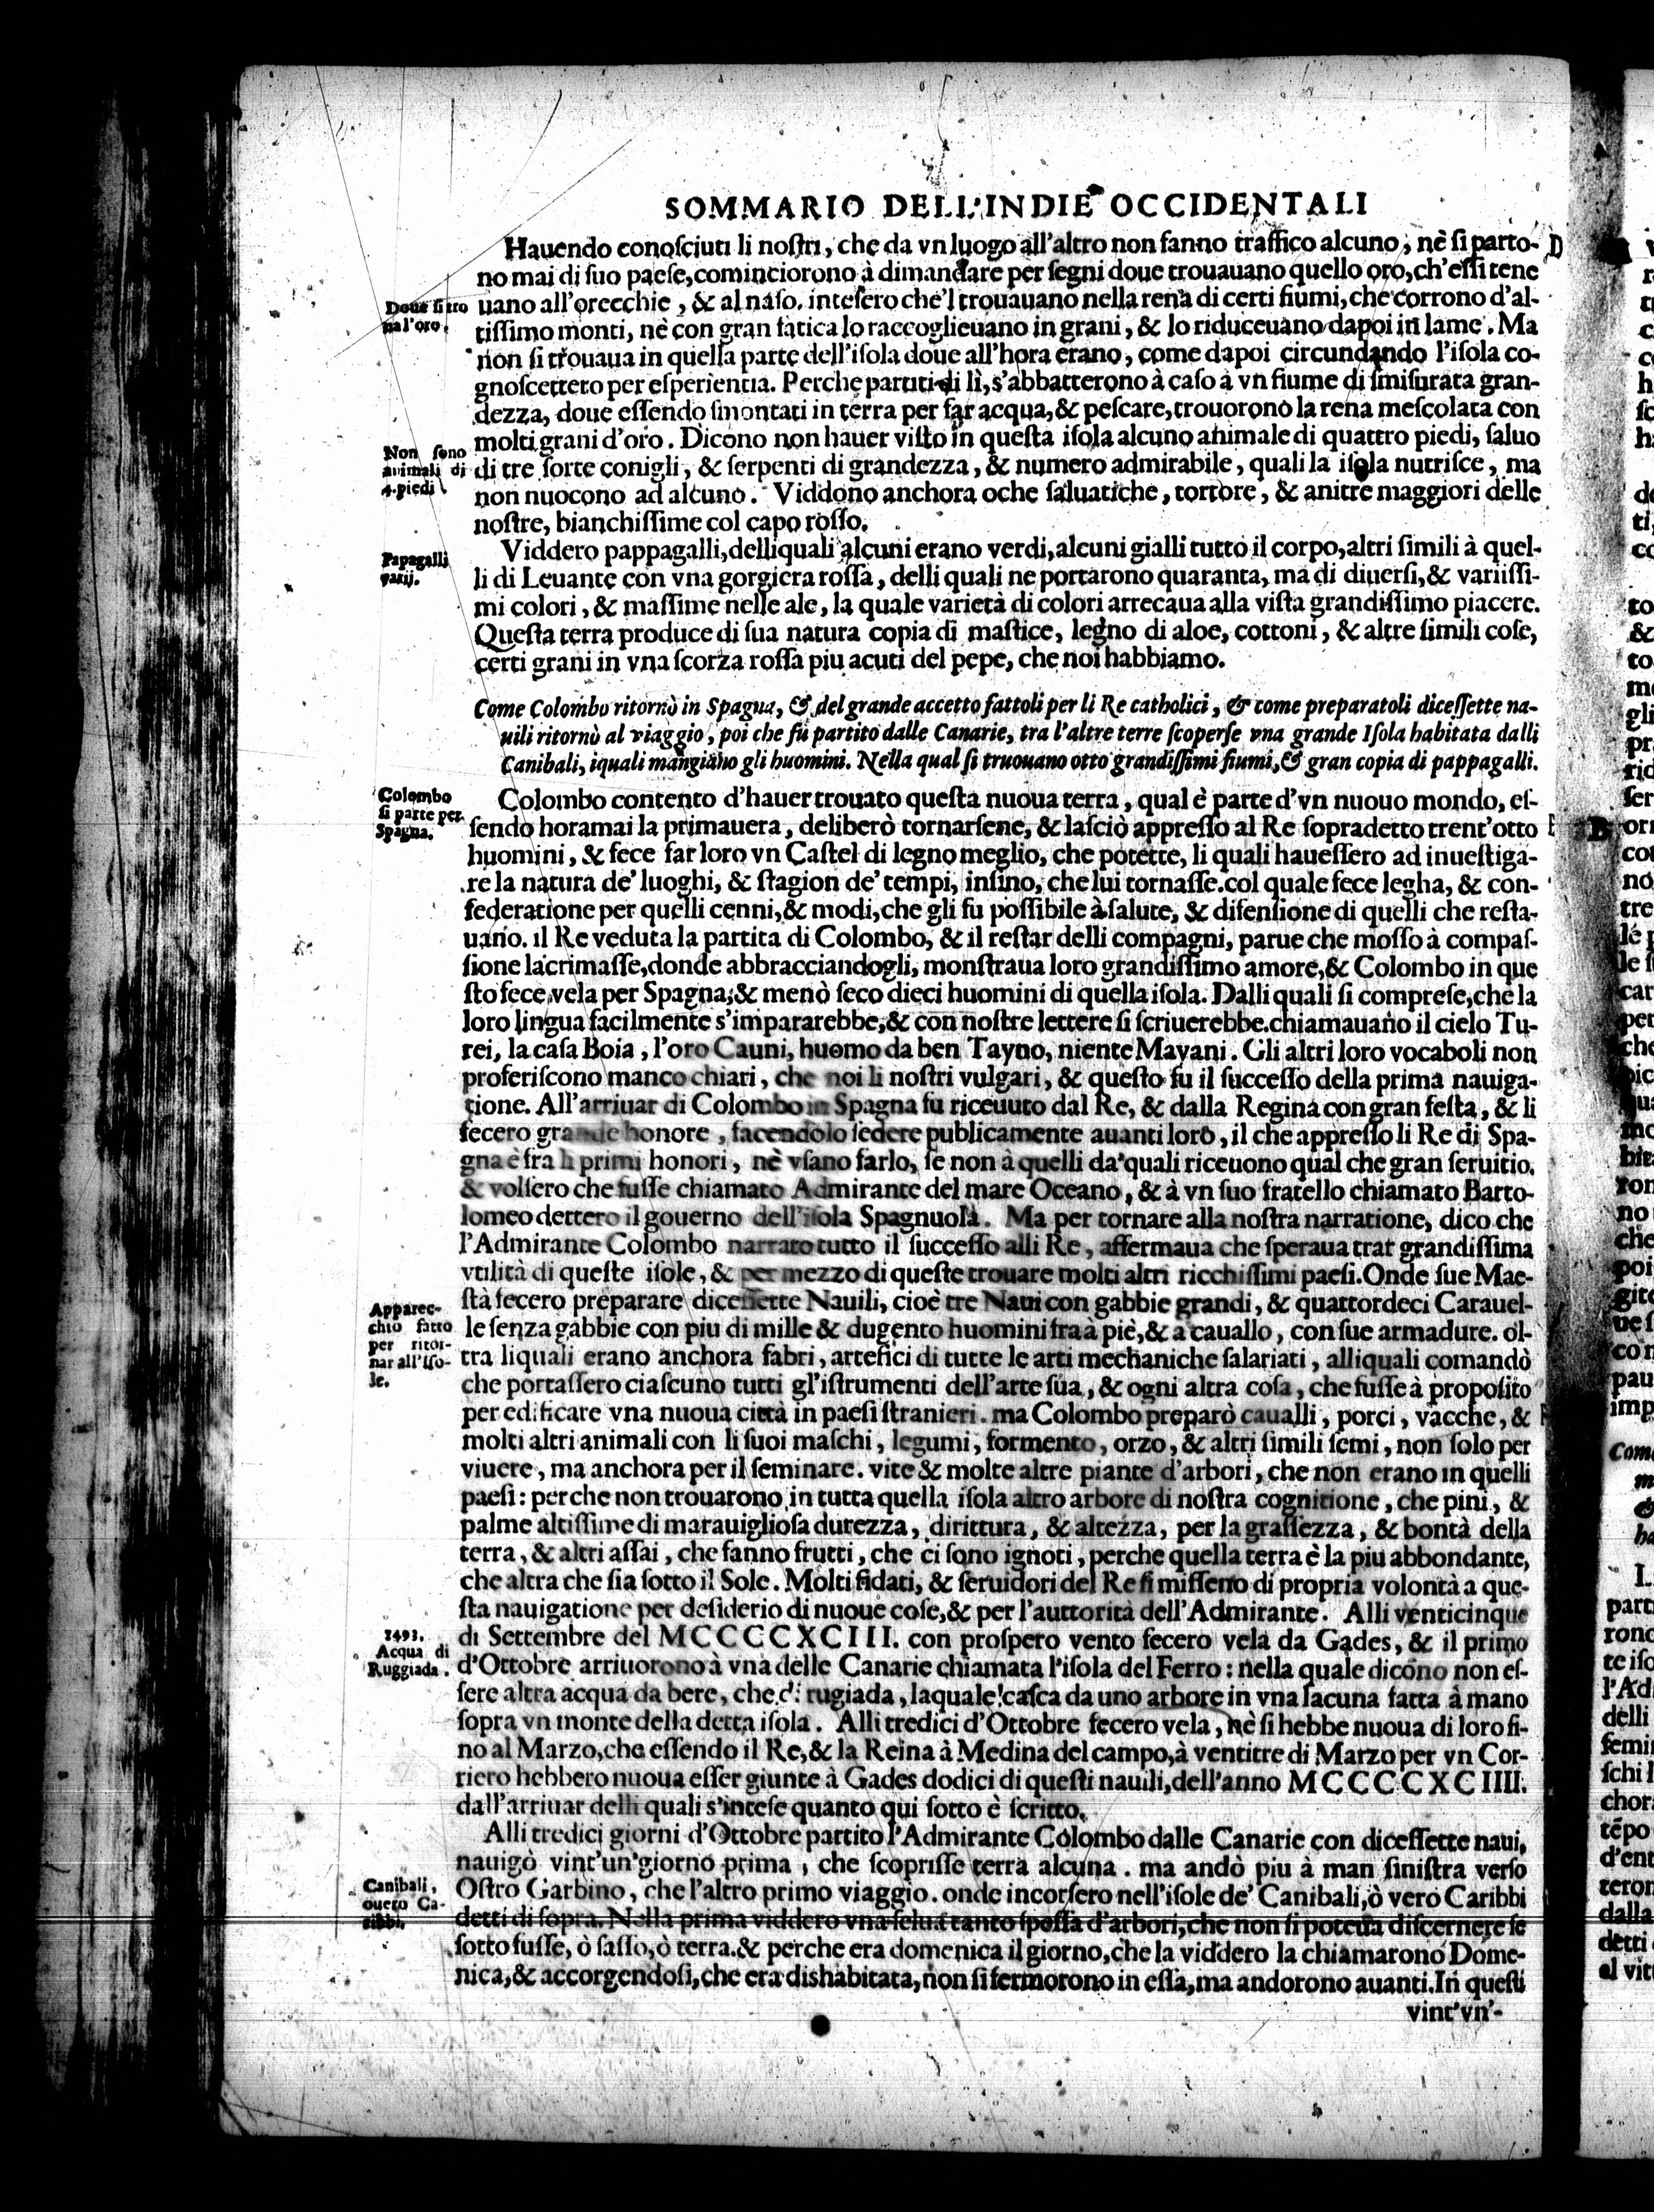 SOMMARIO DELL'INDIE OCCIDENTALI
Hauendo conoſciuti li noſtri, che da vn luogo all'altro non fanno traffico alcuno, nè ſi parto-
D
no mai di ſuo paeſe, cominciorono à dimandare per ſegni doue trouauano quello oro, ch'eſſi tene
Doue ſi tro
ua l'oro.
uano all'orecchie, & al naſo. inteſero che'l trouauano nella rena di certi fiumi, che corrono d'al-
tiſſimo monti, nè con gran fatica lo raccoglieuano in grani, & lo riduceuano dapoi in lame. Ma
non ſi trouaua in quella parte dell'iſola doue all'hora erano, come dapoi circundando l'iſola co-
gnoſcettero per eſperientia. Perche partiti di lì, s'abbatterono à caſo à vn fiume di ſmiſurata gran-
dezza, doue eſſendo ſmontati in terra per far acqua, & peſcare, trouorono la rena meſcolata con
molti grani d'oro. Dicono non hauer viſto in queſta iſola alcuno animale di quattro piedi, ſaluo
Non ſono
animali di
4. piedi
di tre ſorte conigli, & ſerpenti di grandezza, & numero admirabile, quali la iſola nutriſce, ma
non nuocono ad alcuno. Viddono anchora oche ſaluatiche, tortore, & anitre maggiori delle
noſtre, bianchiſſime col capo roſſo.
Papagalli
varij.
Viddero pappagalli, delli quali alcuni erano verdi, alcuni gialli tutto il corpo, altri ſimili à quel-
li di Leuante con vna gorgiera roſſa, delli quali ne portarono quaranta, ma di diuerſi, & variiſſi-
mi colori, & maſſime nelle ale, la quale varietà di colori arrecaua alla viſta grandiſſimo piacere.
Queſta terra produce di ſua natura copia di maſtice, legno di aloe, cottoni, & altre ſimili coſe,
certi grani in vna ſcorza roſſa piu acuti del pepe, che noi habbiamo.
Come Colombo ritornò in Spagna, & del grande accetto fattoli per li Re catholici, & come preparatoli diceſſette na-
uili ritornò al viaggio, poi che fù partito dalle Canarie, tra l'altre terre ſcoperſe vna grande Iſola habitata dalli
Canibali, iquali mangiano gli huomini. Nella qual ſi truouano otto grandiſſimi fiumi, & gran copia di pappagalli.
Colombo
ſi parte per
Spagna.
Colombo contento d'hauer trouato queſta nuoua terra, qual è parte d'vn nuouo mondo, eſ-
ſendo horamai la primauera, deliberò tornarſene, & laſciò appreſſo al Re ſopradetto trent'otto
huomini, & fece far loro vn Caſtel di legno meglio, che potette, li quali haueſſero ad inueſtiga-
re la natura de' luoghi, & ſtagion de' tempi, inſino, che lui tornaſſe. col quale fece legha, & con-
federatione per quelli cenni, & modi, che gli fu poſſibile à ſalute, & difenſione di quelli che reſta-
uano. il Re veduta la partita di Colombo, & il reſtar delli compagni, parue che moſſo à compaſ-
ſione lacrimaſſe, donde abbracciandogli, monſtraua loro grandiſſimo amore, & Colombo in que
ſto fece vela per Spagna, & menò ſeco dieci huomini di quella iſola. Dalli quali ſi compreſe, che la
loro lingua facilmente s'impararebbe, & con noſtre lettere ſi ſcriuerebbe. chiamauano il cielo Tu-
rei, la caſa Boia, l'oro Cauni, huomo da ben Tayno, niente Mayani. Gli altri loro vocaboli non
proferiſcono manco chiari, che noi li noſtri vulgari, & queſto fu il ſucceſſo della prima nauiga-
tione. All'arriuar di Colombo in Spagna fu riceuuto dal Re, & dalla Regina con gran feſta, & li
fecero grande honore, facendolo ſedere publicamente auanti loro, il che appreſſo li Re di Spa-
gna è fra li primi honori, nè vſano farlo, ſe non à quelli da' quali riceuono qual che gran ſeruitio.
& volſero che fuſſe chiamato Admirante del mare Oceano, & à vn ſuo fratello chiamato Barto-
lomeo dettero il gouerno dell'iſola Spagnuola. Ma per tornare alla noſtra narratione, dico che
l'Admirante Colombo narrato tutto il ſucceſſo alli Re, affermaua che ſperaua trar grandiſſima
vtilità di queſte iſole, & per mezzo di queſte trouare molti altri ricchiſſimi paeſi. Onde ſue Mae-
Apparec-
chio fatto
per ritor-
nar all'Iſo-
le.
ſtà fecero preparare diceſſette Nauili, cioè tre Naui con gabbie grandi, & quattordeci Carauel-
le ſenza gabbie con piu di mille & dugento huomini fra à piè, & à cauallo, con ſue armadure. ol-
tra liquali erano anchora fabri, artefici di tutte le arti mechaniche ſalariati, alliquali comandò
che portaſſero ciaſcuno tutti gl'iſtrumenti dell'arte ſua, & ogni altra coſa, che fuſſe à propoſito
per edificare vna nuoua città in paeſi ſtranieri. ma Colombo preparò caualli, porci, vacche, &
molti altri animali con li ſuoi maſchi, legumi, formento, orzo, & altri ſimili ſemi, non ſolo per
viuere, ma anchora per il ſeminare. vite & molte altre piante d'arbori, che non erano in quelli
paeſi: perche non trouarono in tutta quella iſola altro arbore di noſtra cognitione, che pini, &
palme altiſſime di marauiglioſa durezza, dirittura, & altezza, per la graſſezza, & bontà della
terra, & altri aſſai, che fanno frutti, che ci ſono ignoti, perche quella terra è la piu abbondante,
che altra che ſia ſotto il Sole. Molti fidati, & ſeruidori del Re ſi miſſero di propria volontà a que-
ſta nauigatione per deſiderio di nuoue coſe, & per l'auttorità dell'Admirante. Alli venticinque
1493.
Acqua di
Ruggiada.
di Settembre del MCCCCXCIII. con proſpero vento fecero vela da Gades, & il primo
d'Ottobre arriuorono à vna delle Canarie chiamata l'iſola del Ferro: nella quale dicono non eſ-
ſere altra acqua da bere, che di rugiada, laquale caſca da uno arbore in vna lacuna fatta à mano
ſopra vn monte della detta iſola. Alli tredici d'Ottobre fecero vela, nè ſi hebbe nuoua di loro fi-
no al Marzo, che eſſendo il Re, & la Reina à Medina del campo, à ventitre di Marzo per vn Cor-
riero hebbero nuoua eſſer giunte à Gades dodici di queſti nauili, dell'anno MCCCCXCIIII.
dall'arriuar delli quali s'inteſe quanto qui ſotto è ſcritto.
Alli tredici giorni d'Ottobre partito l'Admirante Colombo dalle Canarie con diceſſette naui,
nauigò vint'un'giorno prima, che ſcopriſſe terra alcuna. ma andò piu à man ſiniſtra verſo
Canibali,
ouero Ca-
ribbi.
Oſtro Garbino, che l'altro primo viaggio. onde incorſero nell'iſole de' Canibali, ò vero Caribbi
detti di ſopra. Nella prima viddero vna ſelua tanto ſpeſſa d'arbori, che non ſi poteua diſcernere ſe
ſotto fuſſe, ò ſaſſo, ò terra. & perche era domenica il giorno, che la viddero la chiamarono Dome-
nica, & accorgendoſi, che era dishabitata, non ſi fermorono in eſſa, ma andorono auanti. In queſti
vint'vn'-